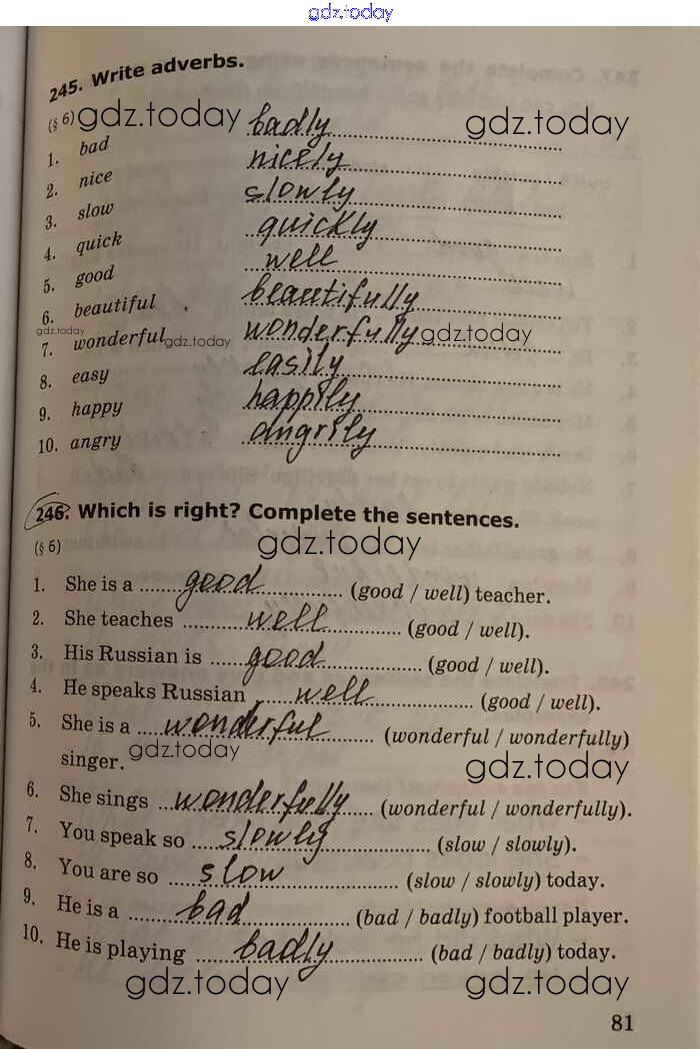 gdz.today
245. Write adverbs.
(§ 6) gdz.today gdz.today
1. bad badly
2. nice nicely
3. slow slowly
4. quick quickly
5. good well
6. beautiful beautifully
gdz.today
7. wonderful gdz.today wonderfully gdz.today
8. easy easily
9. happy happily
10. angry angrily
246. Which is right? Complete the sentences.
(§ 6) gdz.today
1. She is a ........ good ................ (good / well) teacher.
2. She teaches ............ well ................ (good / well).
3. His Russian is ........ good ................ (good / well).
4. He speaks Russian ........ well ................ (good / well).
5. She is a .... wonderful ........ (wonderful / wonderfully)
gdz.today
singer. gdz.today
6. She sings ... wonderfully .... (wonderful / wonderfully).
7. You speak so ...... slowly ................ (slow / slowly).
8. You are so ...... slow ................ (slow / slowly) today.
9. He is a ........ bad ................ (bad / badly) football player.
10. He is playing ...... badly ............ (bad / badly) today.
gdz.today gdz.today
81